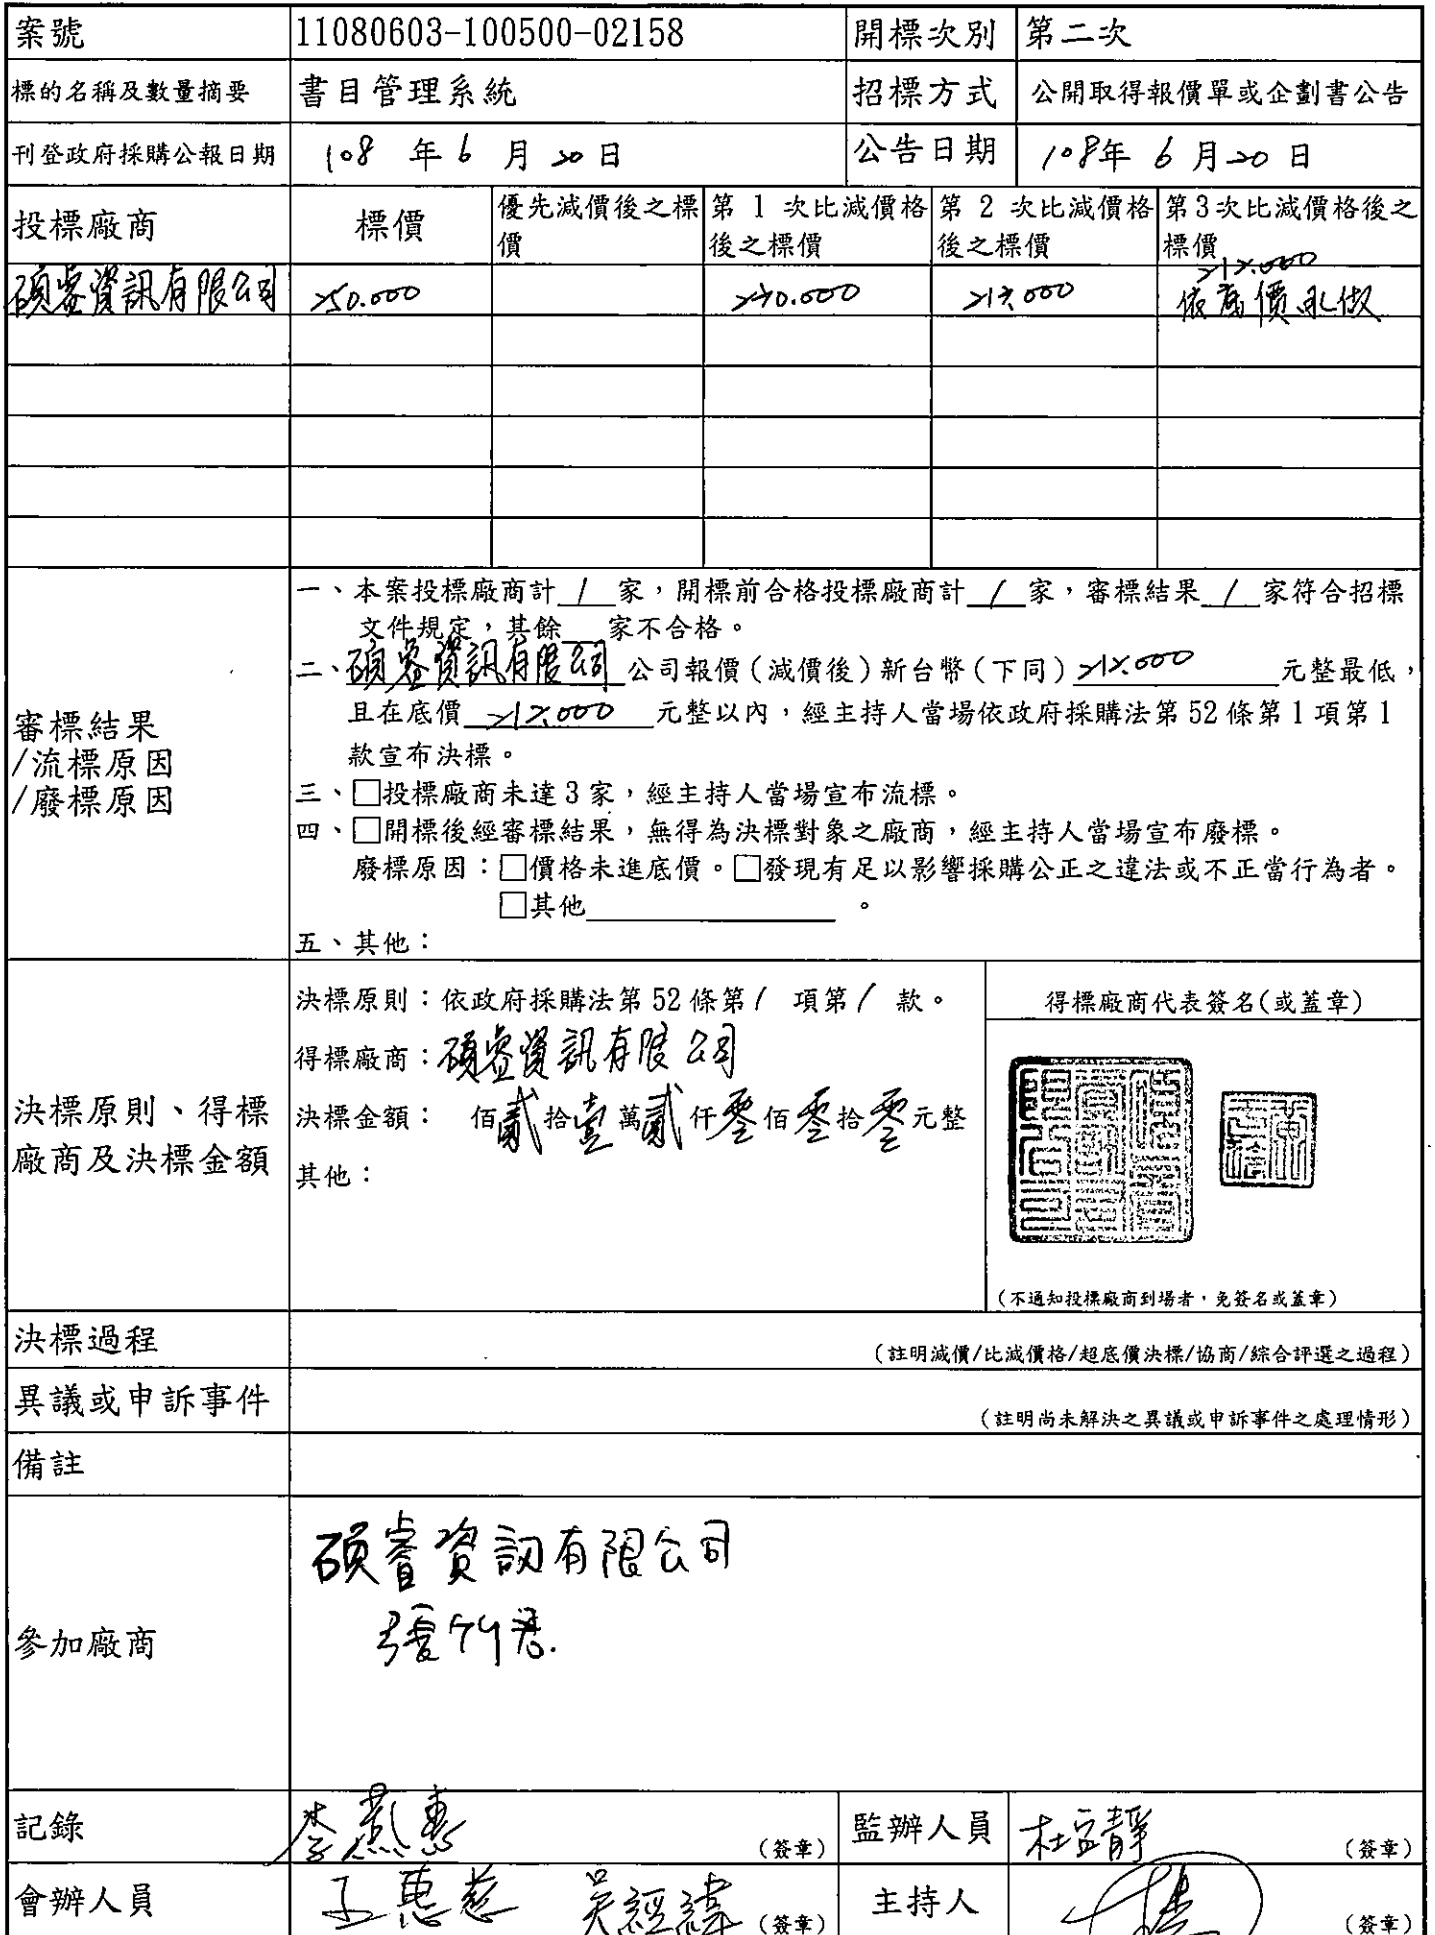 案號 11080603-100500-02158 開標次別 第二次
標的名稱及數量摘要 書目管理系統 招標方式 公開取得報價單或企劃書公告
刊登政府採購公報日期 108 年 6 月 20 日 公告日期 108年 6 月 20 日
投標廠商 標價 優先減價後之標價 第 1 次比減價格後之標價 第 2 次比減價格後之標價 第3次比減價格後之標價
212.000
碩睿資訊有限公司 250.000 220.000 217.000 依底價承做
審標結果
/流標原因
/廢標原因
一、本案投標廠商計 1 家，開標前合格投標廠商計 1 家，審標結果 1 家符合招標
文件規定，其餘 家不合格。
二、碩睿資訊有限公司 公司報價（減價後）新台幣（下同）212.000 元整最低，
且在底價 212.000 元整以內，經主持人當場依政府採購法第 52 條第 1 項第 1
款宣布決標。
三、□投標廠商未達 3 家，經主持人當場宣布流標。
四、□開標後經審標結果，無得為決標對象之廠商，經主持人當場宣布廢標。
廢標原因：□價格未進底價。□發現有足以影響採購公正之違法或不正當行為者。
□其他 。
五、其他：
決標原則、得標
廠商及決標金額
決標原則：依政府採購法第 52 條第 1 項第 1 款。
得標廠商：碩睿資訊有限公司
決標金額： 佰貳拾壹萬貳仟零佰零拾零元整
其他：
得標廠商代表簽名(或蓋章)
（不通知投標廠商到場者，免簽名或蓋章）
決標過程 （註明減價/比減價格/超底價決標/協商/綜合評選之過程）
異議或申訴事件 （註明尚未解決之異議或申訴事件之處理情形）
備註
參加廠商
碩睿資訊有限公司
記錄 李燕惠 （簽章） 監辦人員 杜益靜 （簽章）
會辦人員 王惠慈 吳經緯 （簽章） 主持人 （簽章）